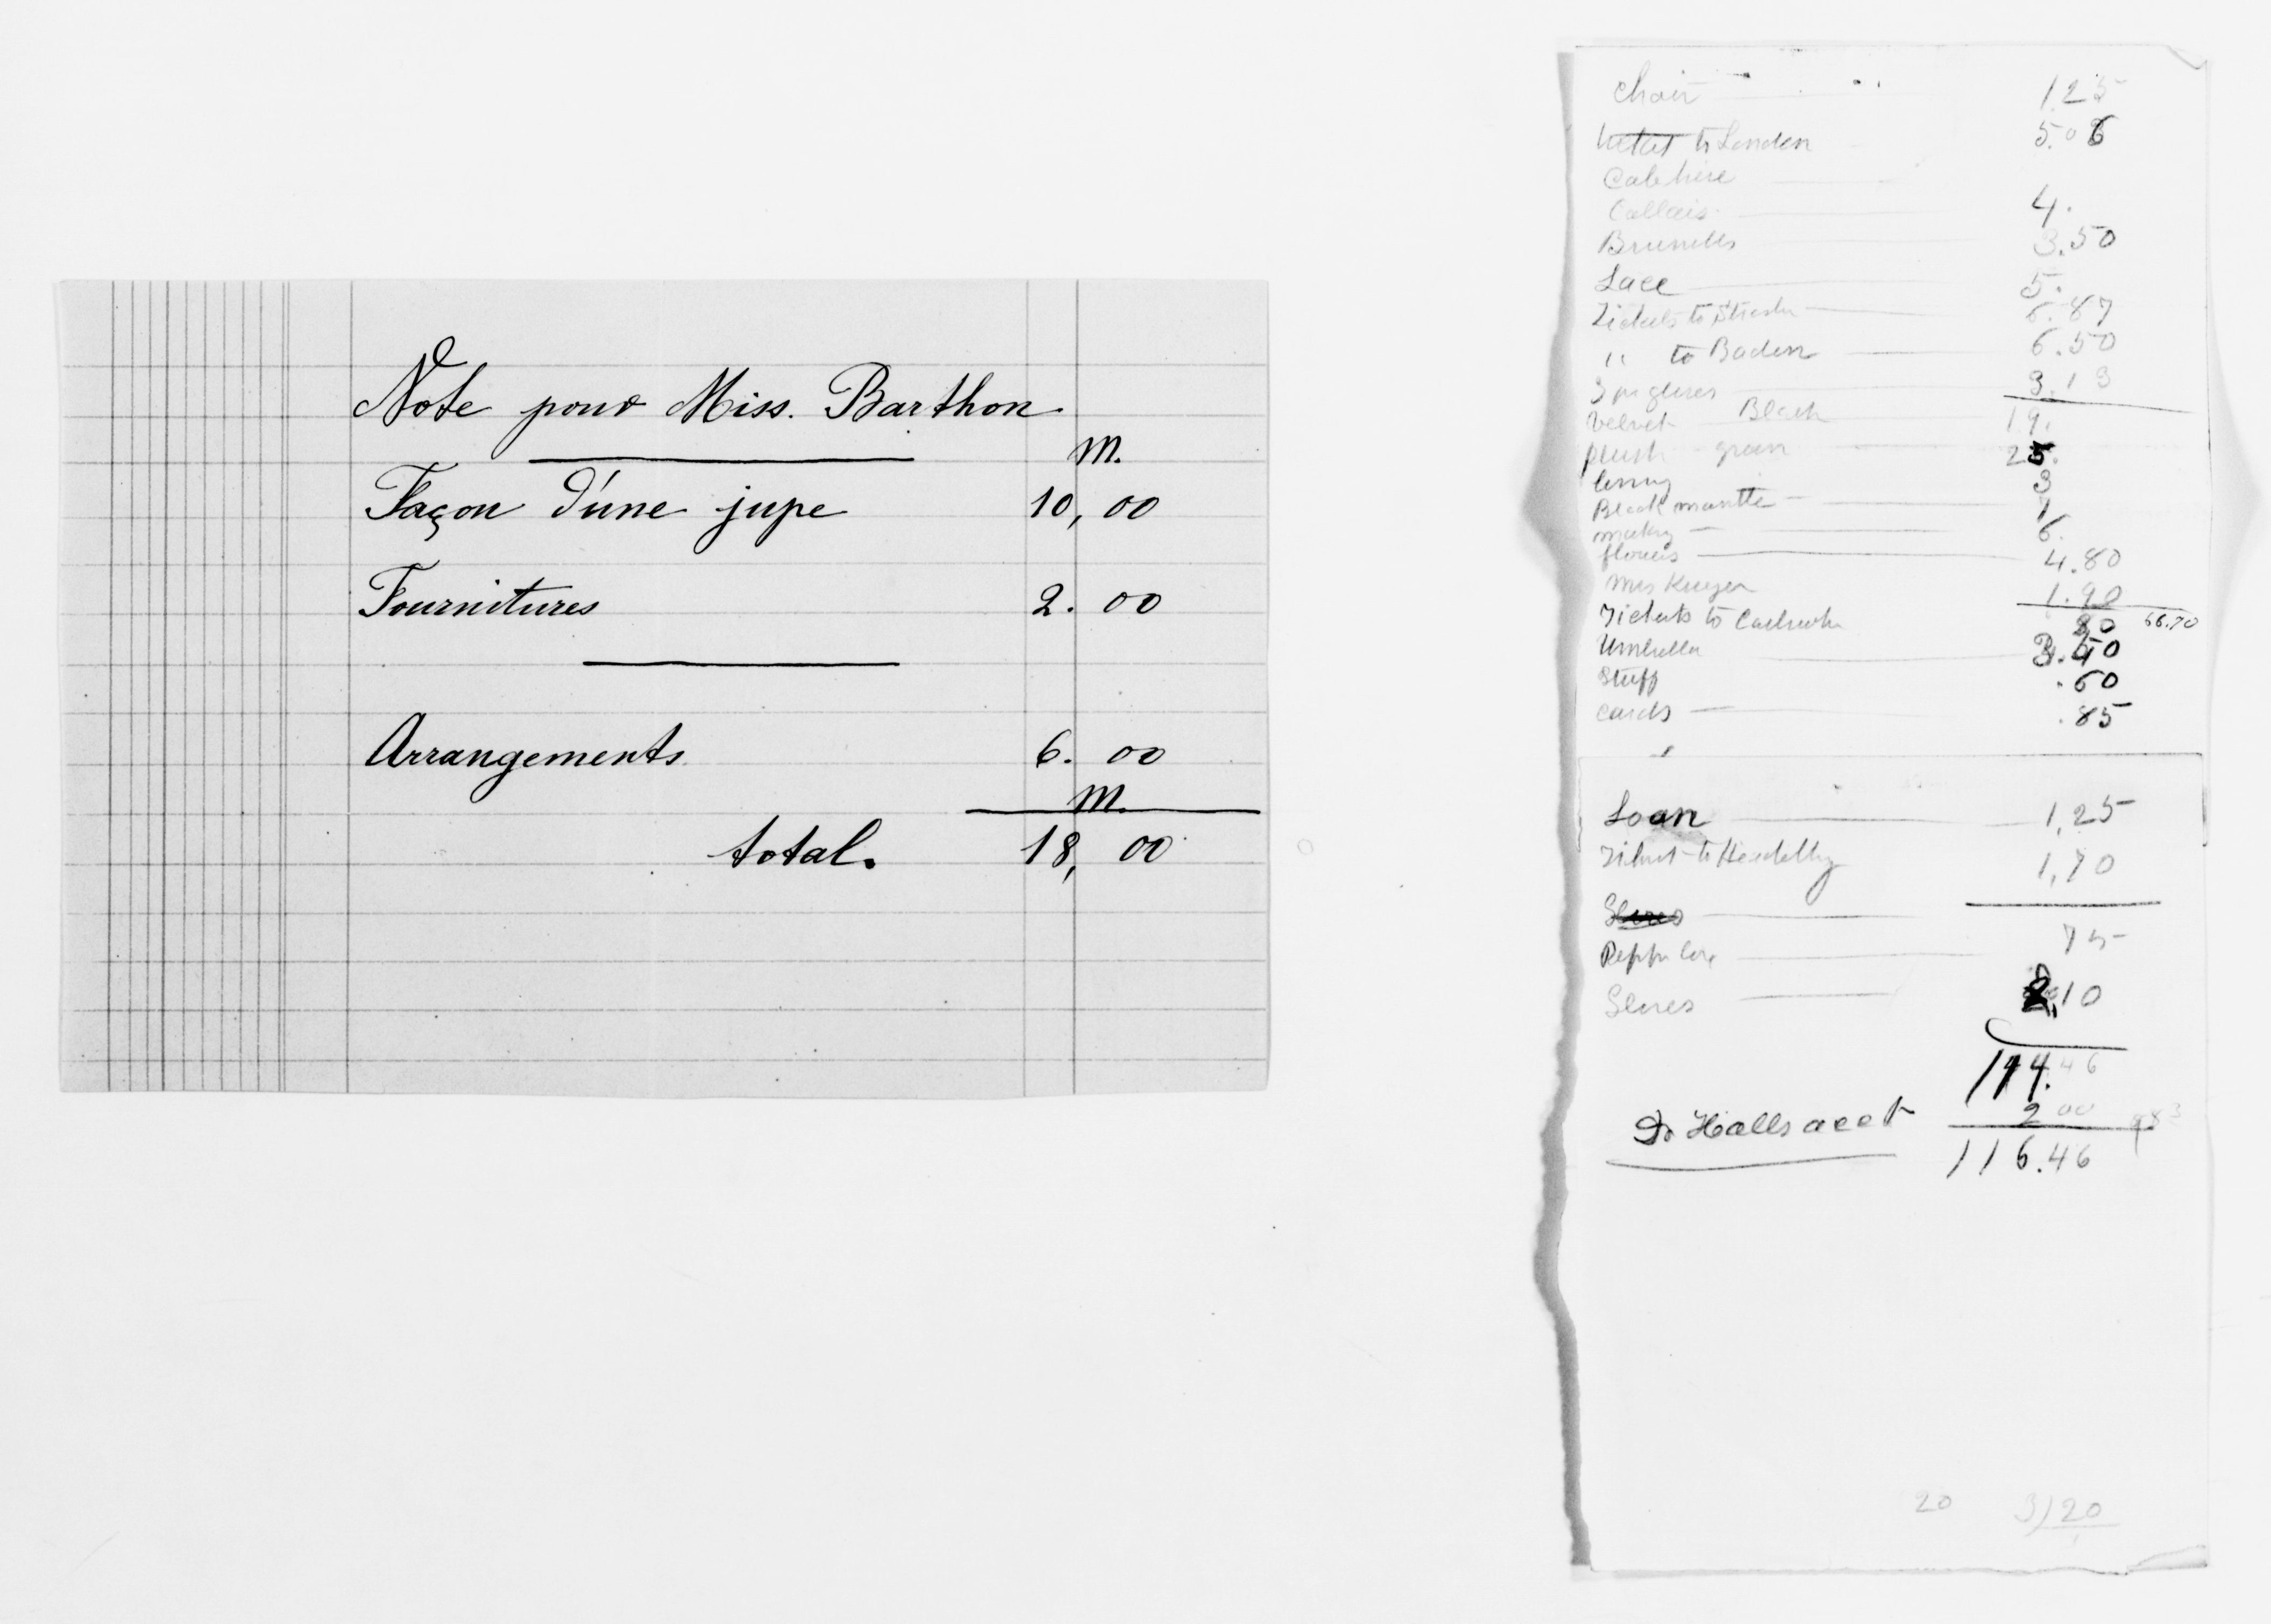 Note pour Miss. Barthon
m.
Façon d'une jupe 10,00
Fournitures 2.00
Arrangements 6.00
m.
total. 18,00
Chair 1.25
to London 5.06
Cab hire
Callais 4.
Brussells 3.50
Lace 5.
Tickets to 6.87
" to Baden 6.50
3 pr gloves 3.13
Velvet Black 19.
plush green 25.
lining 3
Black mantle 7
making 6.
flowers 4.80
Mrs Kruger 1.90
Tickets to Carlsruhe 80 66.70
Umbrella 3.40
Stuff .60
cards .85
Loan 1,25
Ticket to Heidelbg 1,70
75
Gloves 2,10
114.46
2 00
Dr Halls acct
116.46
20 3)20